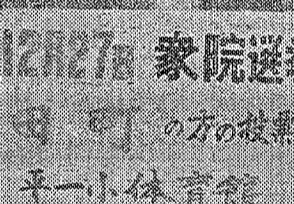 12月27日 衆院選
町
の方の投票
平一小体育館